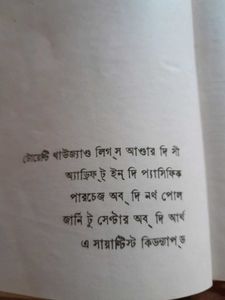 টোয়েন্টি থাউজ্যাণ্ড লিগ্‌স আণ্ডার দি সী
অ্যাড্রিফ্‌ট্ ইন্ দি প্যাসিফিক
পারচেজ অব্ দি নর্থ পোল
জার্নি টু সেণ্টার অব্ দি আর্থ
এ সায়ান্টিস্ট কিডন্যাপ্‌ড